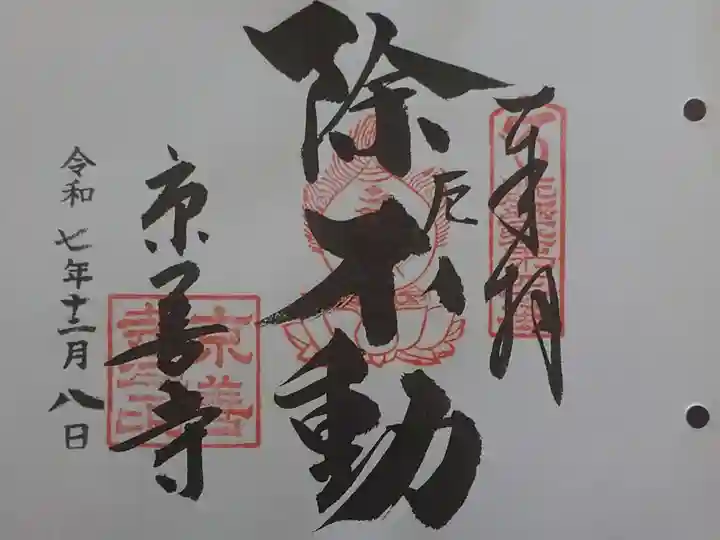 奉拝
除厄不動
京善寺
令和七年十二月八日
京善寺印